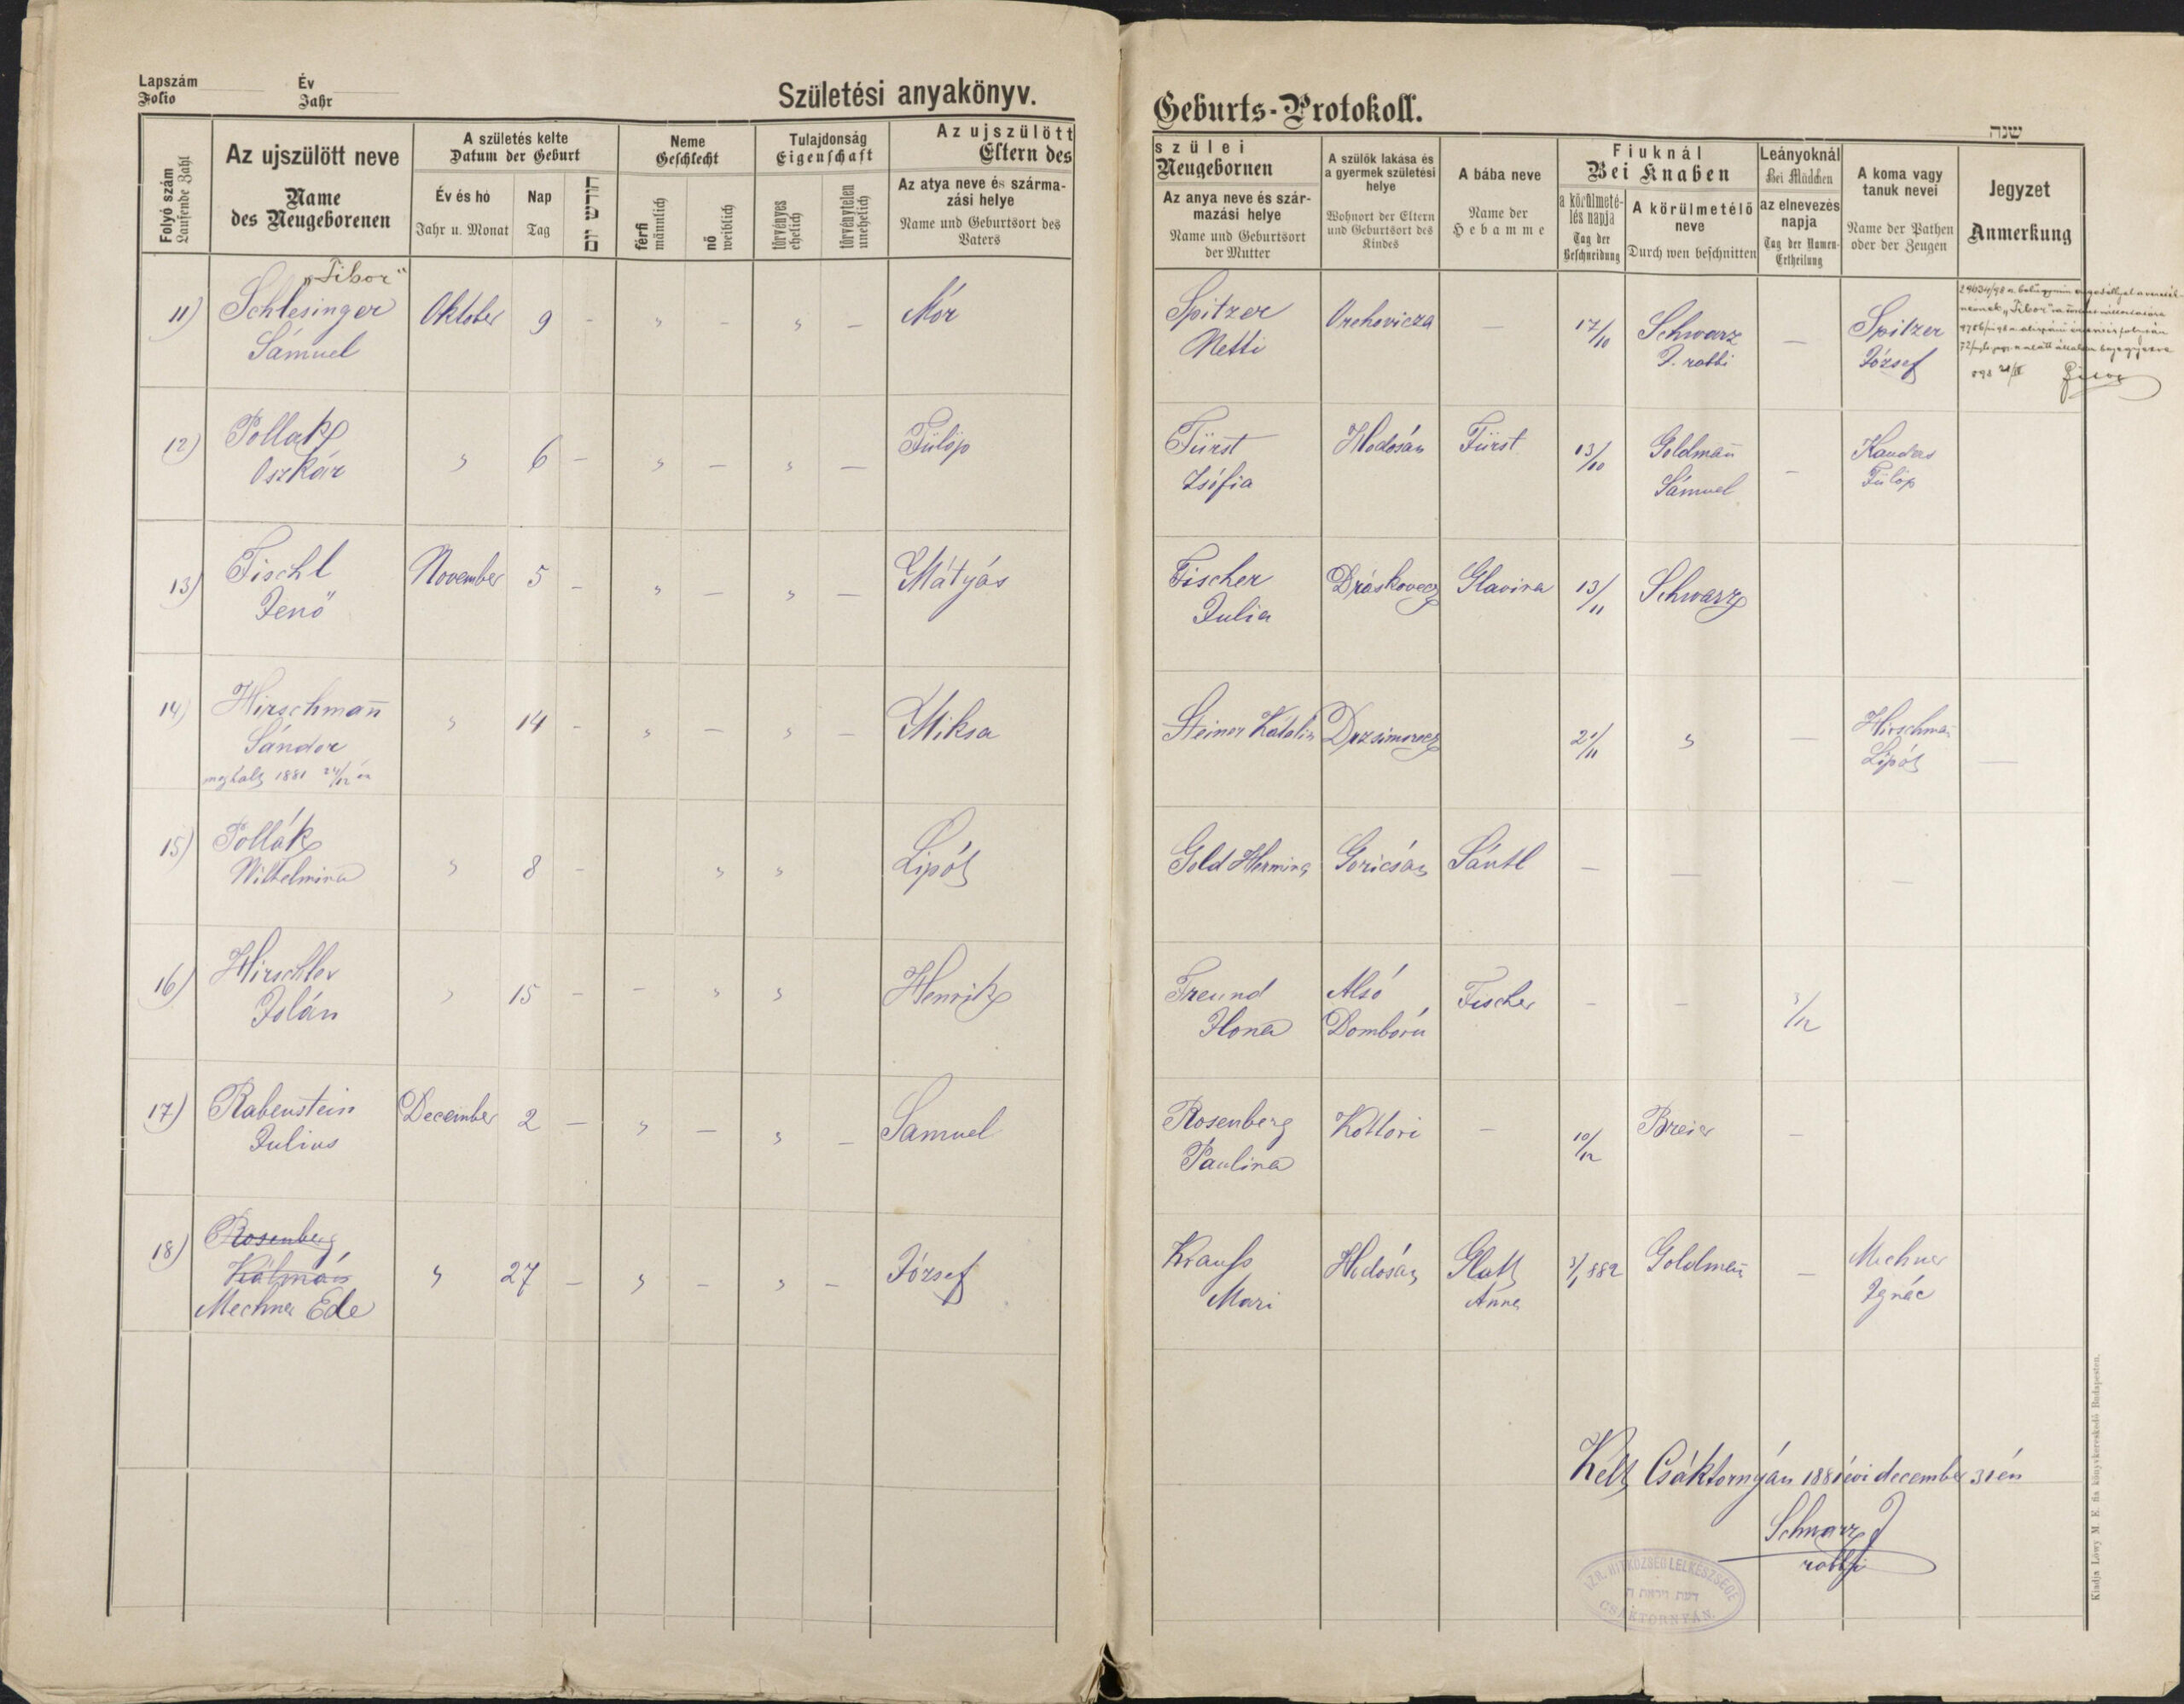 Lapszám
Folio
Év
Jahr
Születési anyakönyv.
Geburts-Protokoll.
שנה
Folyó szám
Laufende Zahl
Az ujszülött neve
Name
des Neugeborenen
A születés kelte
Datum der Geburt
Év és hó
Jahr u. Monat
Nap
Tag
יום חודש
Neme
Geschlecht
férfi
männlich
nő
weiblich
Tulajdonság
Eigenschaft
törvényes
ehelich
törvénytelen
unehelich
Az ujszülött
Eltern des
Az atya neve és szárma-
zási helye
Name und Geburtsort des
Vaters
szülei
Neugebornen
Az anya neve és szár-
mazási helye
Name und Geburtsort
der Mutter
A szülők lakása és
a gyermek születési
helye
Wohnort der Eltern
und Geburtsort des
Kindes
A bába neve
Name der
Hebamme
Fiuknál
Bei Knaben
a körülmeté-
lés napja
Tag der
Beschneidung
A körülmetélő
neve
Durch wen beschnitten
Leányoknál
Bei Mädchen
az elnevezés
napja
Tag der Namen-
Ertheilung
A koma vagy
tanuk nevei
Name der Pathen
oder der Zeugen
Jegyzet
Anmerkung
"Tibor"
11) Schlesinger Oktober 9 - " - " - Mór
Sámuel
Spitzer Orehovicza - 17/10 Schwarz - Spitzer
Netti J. rabbi József
12) Pollak " 6 - " - " - Fülöp
Oszkár
Fürst Hodosán Fürst 13/10 Goldman̄ -
Zsófia Sámuel Fülöp
13) Fischl November 5 - " - " - Mátyás
Jenő
Fischer Dráskovecz Glavina 13/11 Schwarz
Julia
14) Hirschman̄ " 14 - " - " - Miksa
Sándor
meghalt 1881 24/12 én
Steiner Katalin 21/11 " - Hirschman̄ -
Lipót
15) Pollák " 8 - " " Lipót
Wilhelmina
Gold Hermina Goricsán Sántl - - -
16) Hirschler " 15 - - " " Henrik
Jolán
Freund Alsó Fischer - - 3/12
Ilona Domború
17) Rabenstein December 2 - " - " - Samuel
Julius
Rosenberg Kottori - 10/12 Breier -
Paulina
18) Rosenberg
Kálmán " 27 - " - " - József
Mechner Ede
Krauss Hodosán Glatt 3/1 882 Goldman̄ - Mechner
Mari Anna Ignác
Kelt Csáktornyán 1881 évi december 31 én
Schwarz J
rabbi
IZR. HITKÖZSÉG LELKÉSZSÉGE
CSÁKTORNYÁN.
Kiadja Löwy M. E. fia könyvkereskedő Budapesten.